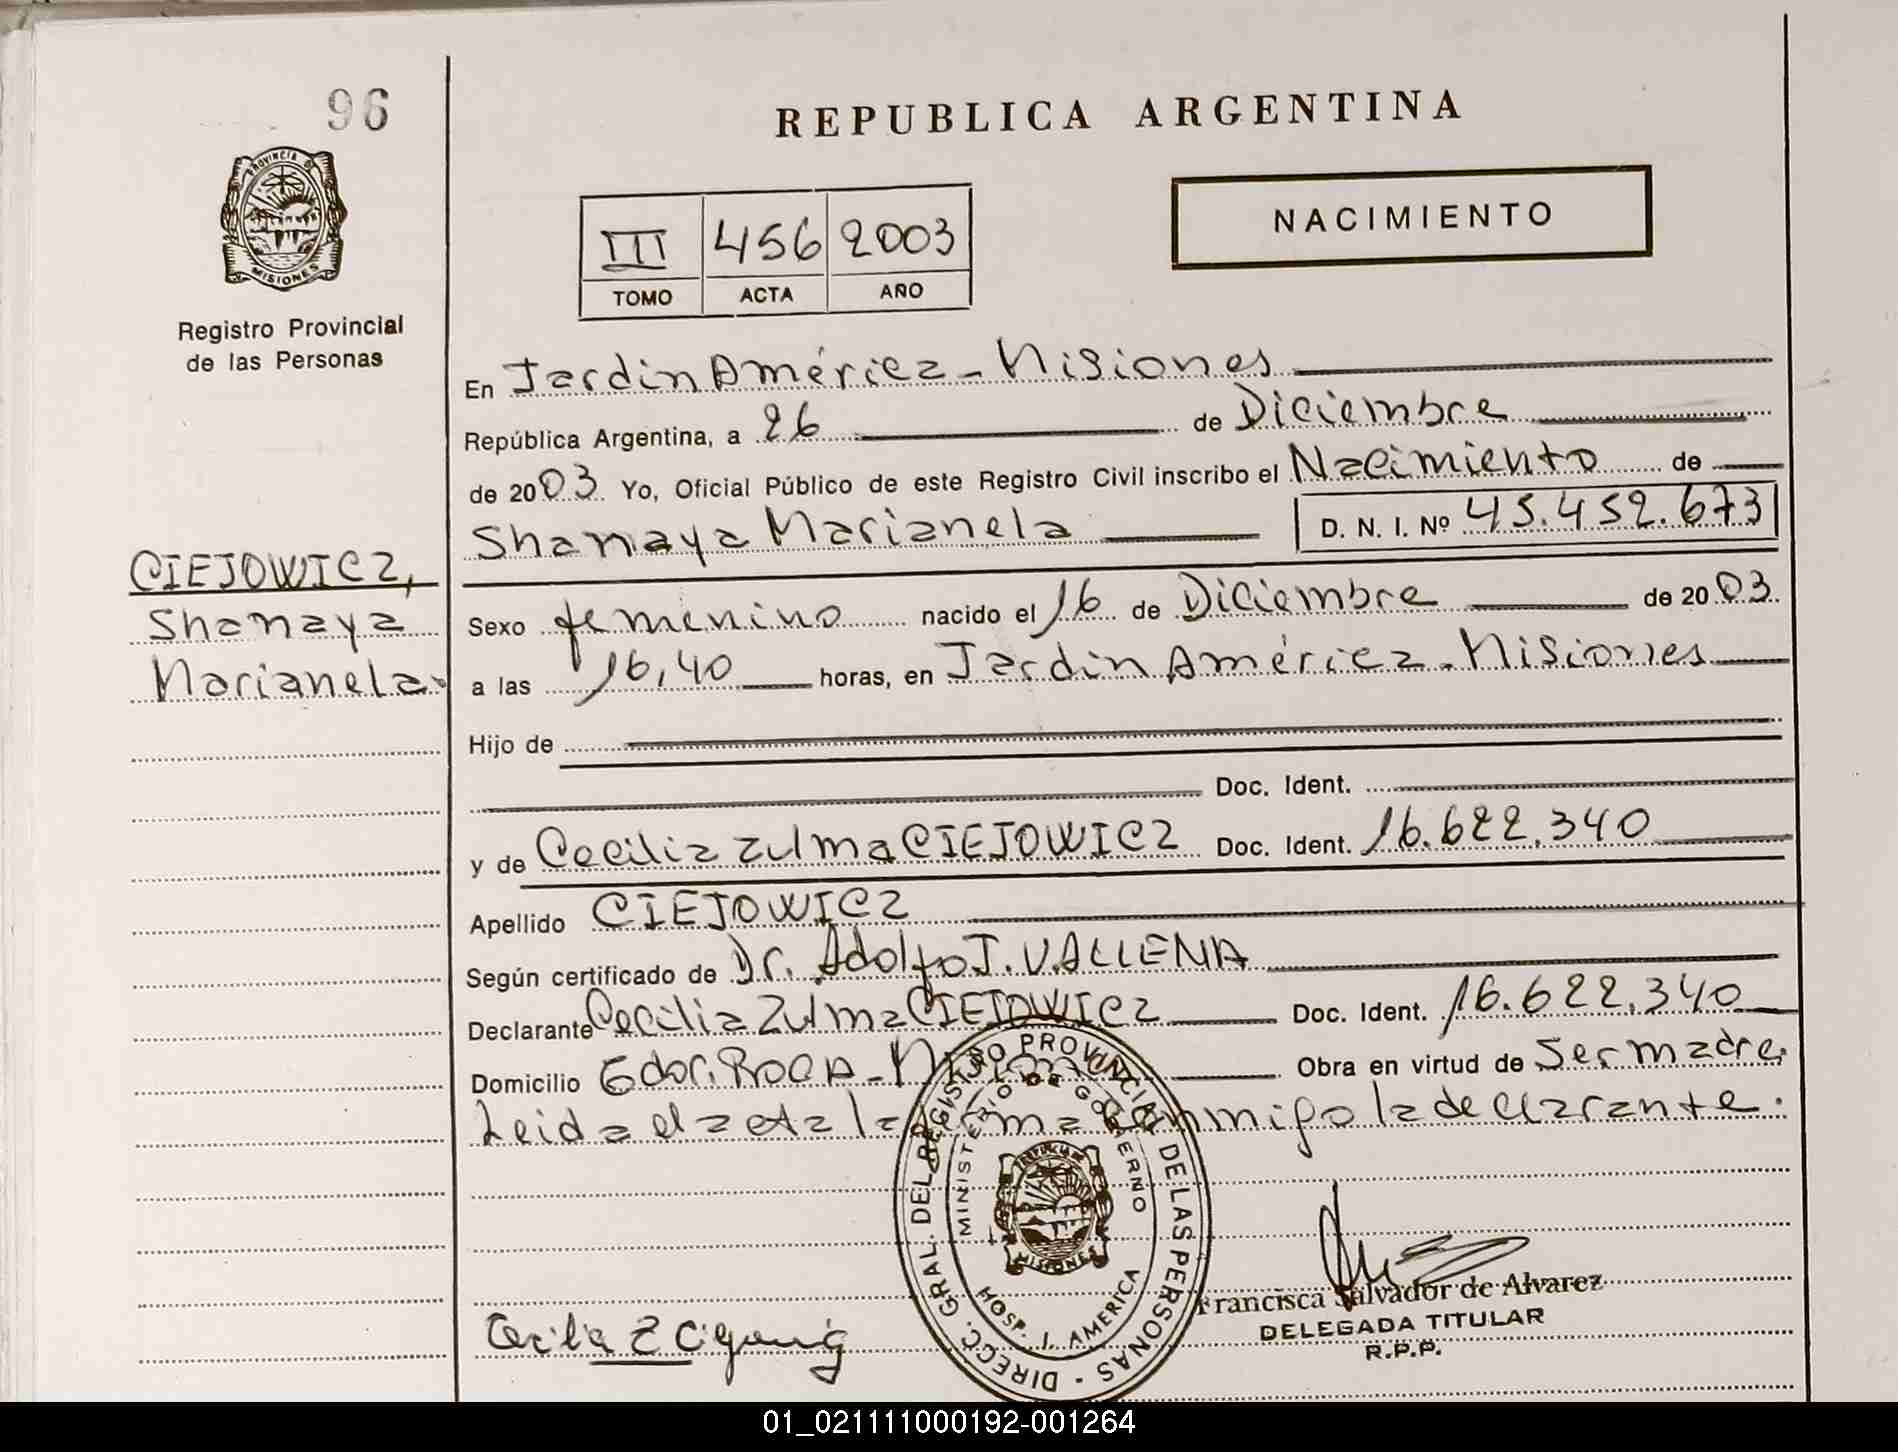 96
REPUBLICA ARGENTINA
PROVINCIA DE
MISIONES
Registro Provincial
de las Personas
III 456 2003
TOMO ACTA AÑO
NACIMIENTO
En Jardín América - Misiones
República Argentina, a 26 de Diciembre
de 2003 Yo, Oficial Público de este Registro Civil inscribo el Nacimiento de
Shanaya Marianela D. N. I. Nº 45.452.673
CIEJOWICZ,
Shanaya
Marianela
Sexo femenino nacido el 16 de Diciembre de 2003
a las 16,40 horas, en Jardín América - Misiones
Hijo de
Doc. Ident.
y de Cecilia Zulma CIEJOWICZ Doc. Ident. 16.622.340
Apellido CIEJOWICZ
Según certificado de Dr. Adolfo J. VALLENA
Declarante Cecilia Zulma CIEJOWICZ Doc. Ident. 16.622.340
Domicilio Gdor. ROCA - Misiones Obra en virtud de Ser madre.
Leida el acta la firma conmigo la declarante.
DIRECC. GRAL. DEL REGISTRO PROVINCIAL DE LAS PERSONAS
MINISTERIO DE GOBIERNO
MISIONES
HOSP. J. AMERICA
Cecilia Z
Francisca Salvador de Alvarez
DELEGADA TITULAR
R.P.P.
01_021111000192-001264